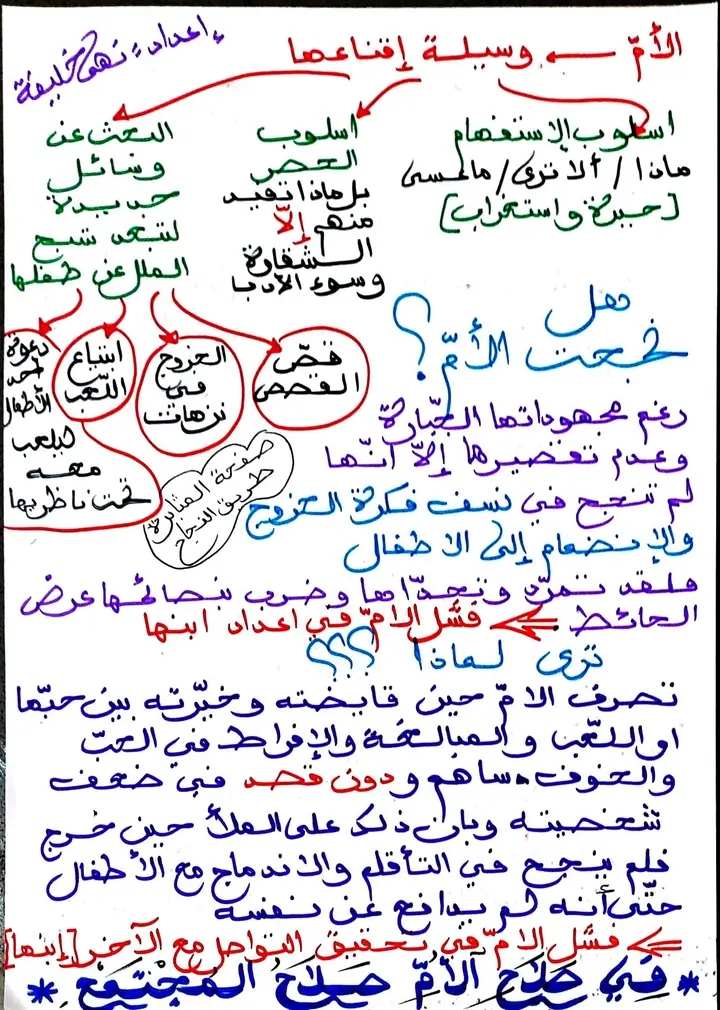 إعداد: نهى خليفة
الأمّ ← وسيلة إقناعها
اسلوب الإستفهام
ماذا / ألا ترى / ما لمسى
[حيرة واستغراب]
اسلوب
الحصر
بل ماذا تفيد
منهم إلّا
الشقاوة
وسوء الأدب
البحث عن
وسائل
جديدة
لتبعد شبح
الملل عن طفلها
قصّ
القصص
الخروج
في
نزهات
ابتياع
اللّعب
دعوة
أحد
الأطفال
ليلعب
معه
تحت ناظريها
هل
نجحت الأمّ؟
رغم مجهوداتها الجبّارة
وعدم تقصيرها إلاّ أنّها
لم تنجح في نسف فكرة الخروج
والإنضمام إلى الاطفال
صفحة المثابرة
طريق النجاح
فلقد تمرّد وتحدّاها وضرب بنصائحها عرض
الحائط ⇐ فشل الامّ في اعداد ابنها
ترى لماذا ؟؟؟
تصرف الامّ حين قايضته وخيّرته بين حبّها
او اللّعب والمبالغة والإفراط في الحبّ
والخوف ساهم ودون قصد في ضعف
شخصيته وبان ذلك على الملأ حين خرج
فلم ينجح في التأقلم والاندماج مع الأطفال
حتّى أنه لم يدافع عن نفسه
⇐ فشل الامّ في تحقيق التواصل مع الآخر [إبنها]
* في صلاح الأمّ صلاح المجتمع *